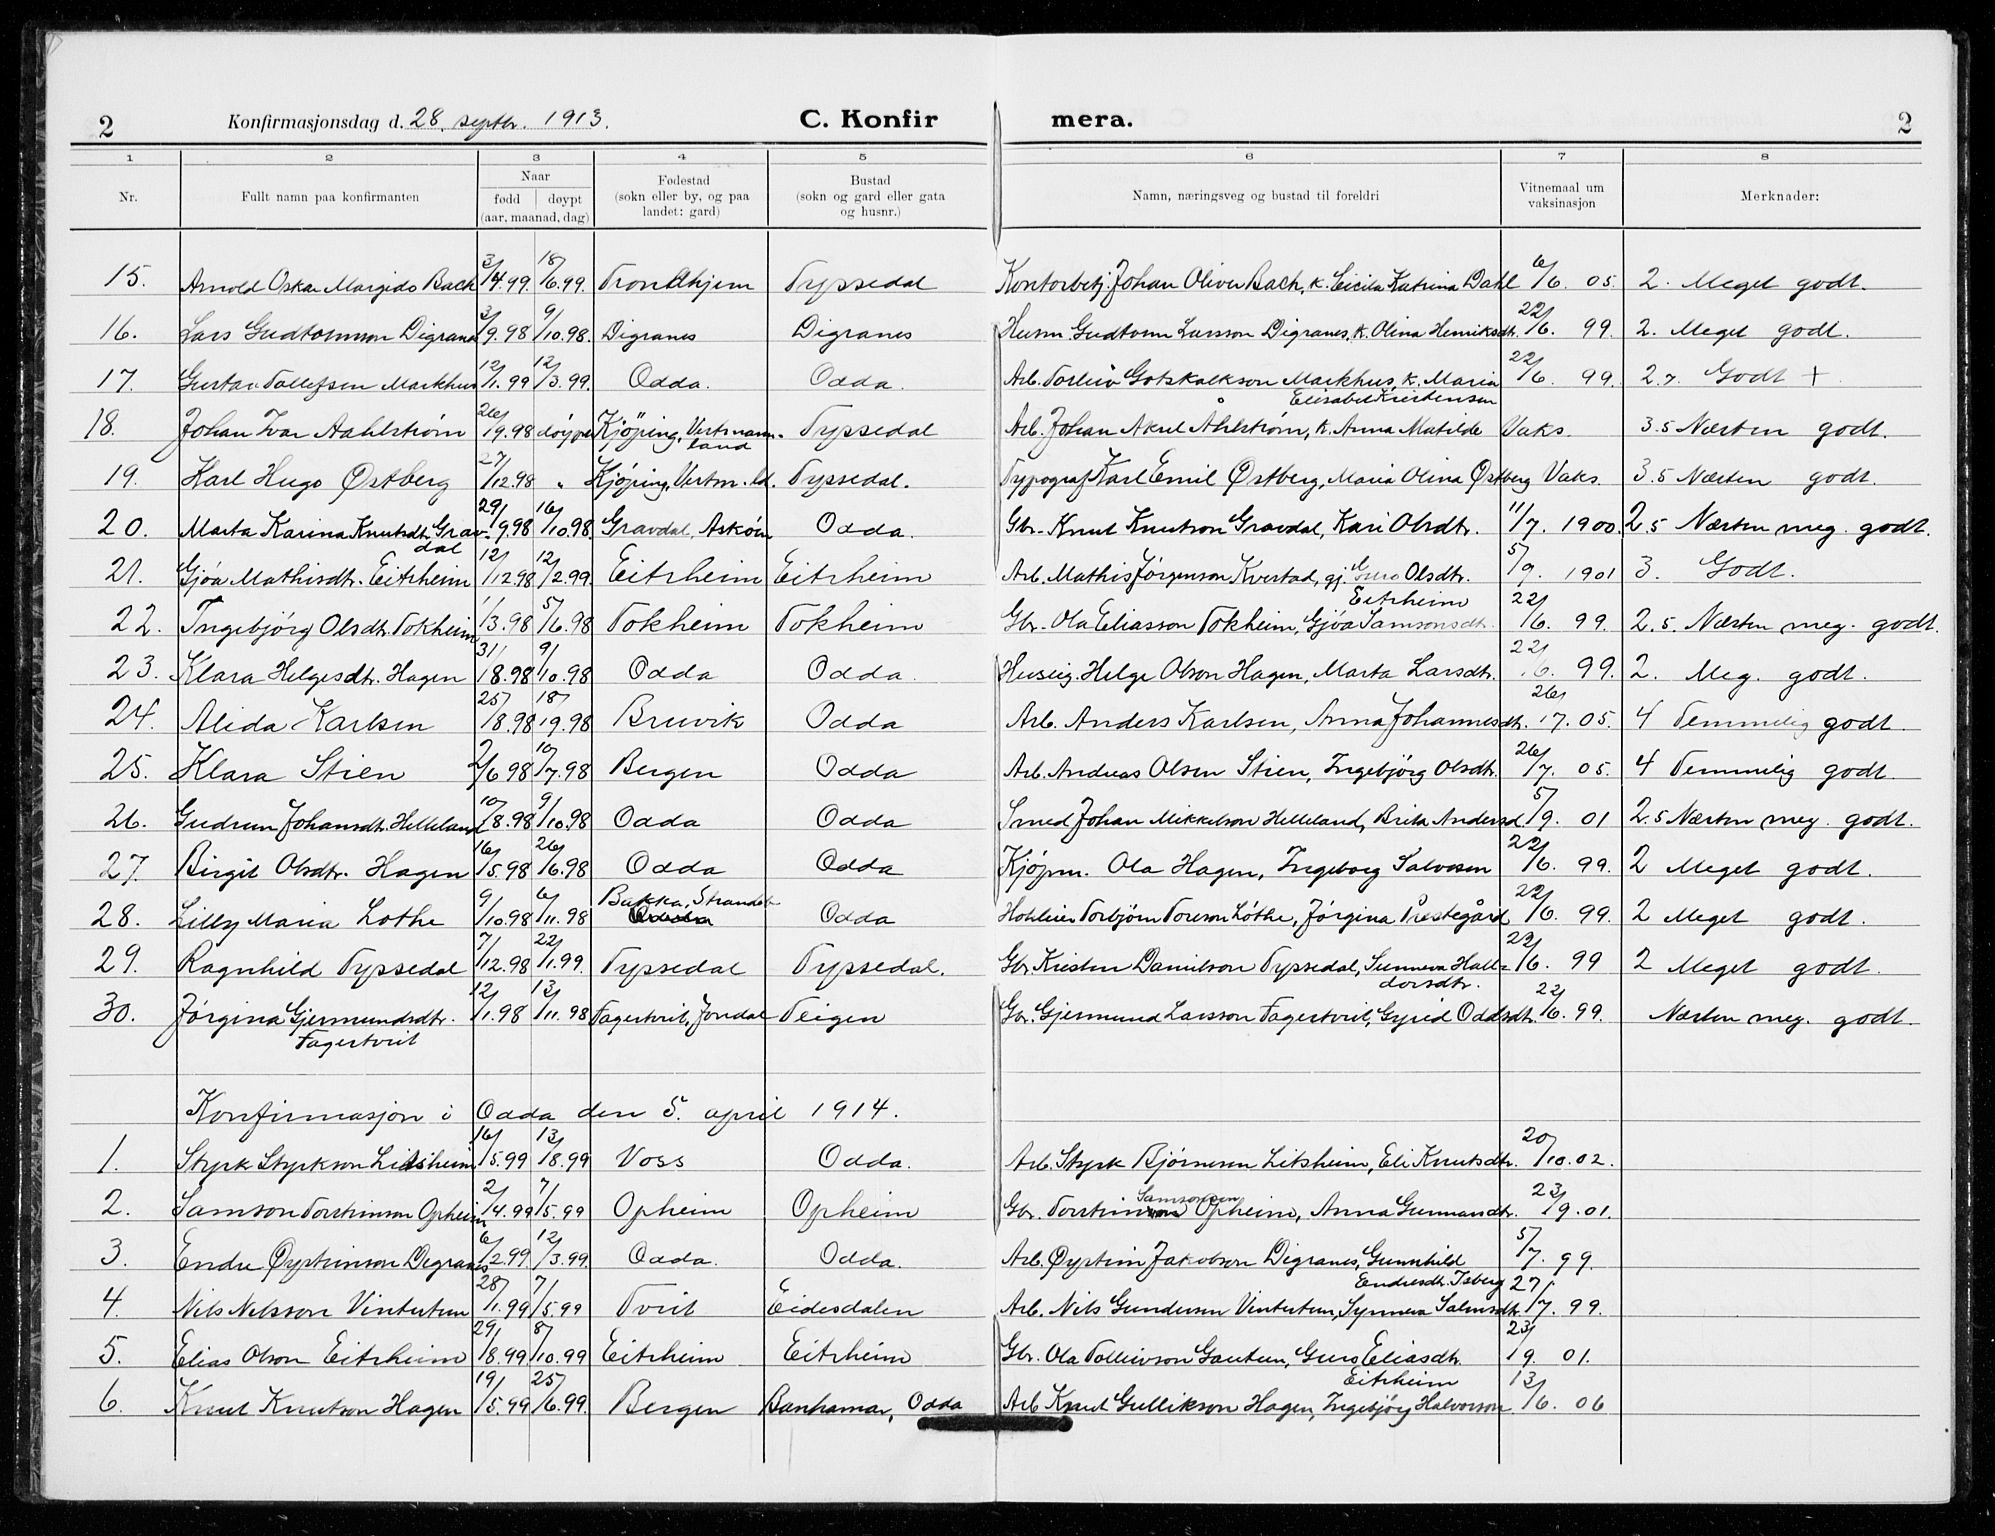 2 Konfirmasjonsdag d. 28. septbr. 1913. C. Konfir mera. 2
1 2 3 4 5 6 7 8
Nr. Fullt namn paa konfirmanten Naar fødd døypt (aar, maanad, dag) Fødestad (sokn eller by, og paa landet: gard) Bustad (sokn og gard eller gata og husnr.) Namn, næringsveg og bustad til foreldri Vitnemaal um vaksinasjon Merknader:
15. Arnold Oskar Margido Bach 3/4.99 18/6.99. Trondhjem Tyssedal Kontorbetj. Johan Oliver Bach, k. Cicila Katrina Dahl 6/6. 05. 2. Meget godt.
16. Lars Gudtormson Digranes 3/9.98 9/10.98. Digranes Digranes Husm Gudtorm Larsson Digranes, k. Olina Henriksdtr. 22/6. 99. 2. Meget godt.
17. Gustav Tollefsen Markhus 12/1.99 12/3.99. Odda. Odda. Arb. Torleiv Gotskalkson Markhus, k. Maria Elisabet Kristensen 22/6. 99. 2.7. Godt +
18. Johan Ivar Aahlstrøm 26/9.98 døypt Kjöping, Vestmannland Tyssedal Arb. Johan Aksel Åhlstrøm, k. Anna Matilde Vaks. 3.5 Næsten godt.
19. Karl Hugo Østberg 27/12.98 " Kjöping, Vestm.ld. Tyssedal. Typograf Karl Emil Østberg, Maria Olina Østberg Vaks. 3.5 Næsten godt.
20. Marta Karina Knutsdtr. Gravdal 29/9.98 16/10.98 Gravdal, Askøin Odda. Gbr. Knut Knutson Gravdal, Kari Olsdtr. 11/7. 1900. 2.5 Næsten meg. godt.
21. Gjøa Mathisdtr. Eitrheim 12/12.98 12/2.99. Eitrheim Eitrheim Arb. Mathis Jørgenson Kvestad, gj. Guro Olsdtr. Eitrheim 5/9. 1901 3. Godt.
22. Ingebjørg Olsdtr. Tokheim 1/3.98 5/6.98 Tokheim Tokheim Gbr. Ola Eliasson Tokheim, Gjøa Samsonsdtr. 22/6. 99. 2.5. Næsten meg. godt.
23. Klara Helgesdtr. Hagen 31/8.98 9/10.98 Odda Odda. Huseig. Helge Olson Hagen, Marta Larsdtr. 22/6. 99. 2. Meg. godt.
24. Alida Karlsen 25/8.98 18/9.98 Bruvik Odda Arb. Anders Karlsen, Anna Johannesdtr. 26/7. 05. 4 Temmelig godt.
25. Klara Stien 2/6 98 10/7.98 Bergen Odda Arb. Andreas Olsen Stien, Ingebjørg Olsdtr. 26/7. 05. 4 Temmelig godt.
26. Gudrun Johansdtr. Helleland 10/8.98 9/10.98 Odda Odda Smed Johan Mikkelson Helleland, Brita Andersd. 5/9. 01 2.5 Næsten meg. godt.
27. Birgit Olsdtr. Hagen 16/5.98 26/6.98 Odda Odda Kjøpm. Ola Hagen, Ingeborg Salvesen 22/6. 99. 2 Meget godt.
28. Lilly Maria Lothe 9/10.98 6/11.98 Bakka, Strandeb. Odda Torbjørn Toreson Løthe, Jørgina Prestegård 22/6. 99. 2 Meget godt.
29. Ragnhild Tyssedal 7/12.98 22/1.99. Tyssedal Tyssedal. Gbr. Kristen Danielson Tyssedal, Sunneva Halldorsdtr. 22/6. 99 2 Meget godt.
30. Jørgina Gjermundsdtr. Fagertvit 12/1.98 13/11.98 Fagertvit, Jondal Teigen Gbr. Gjermund Larsson Fagertvit, Gyrid Oddsdtr. 22/6. 99. Næsten meg. godt.
Konfirmasjon i Odda den 5. april 1914.
1. Styrk Styrkson Litsheim 16/5.99 13/8.99 Voss Odda. Arb. Styrk Bjørnesen Litsheim, Eli Knutsdtr. 20/10.02.
2. Samson Torsteinson Opheim 2/4.99 7/5.99 Opheim Opheim Gbr. Torstein Samsonson Opheim, Anna Gunnarsdtr. 23/9.01.
3. Endre Øysteinson Digranes 6/2.99 12/3.99. Odda. Odda. Arb. Øystein Jakobson Digranes, Gunnhild Endresdtr. Isberg 5/7. 99.
4. Nils Nilsson Vintertun 28/1.99 7/5.99 Tveit Eidesdalen Arb. Nils Gunderson Vintertun, Synneva Salmsdtr. 27/7. 99.
5. Elias Olson Eitrheim 29/8.99 8/10.99 Eitrheim Eitrheim Gbr. Ola Tollievson Gautun, Guro Eliasdtr. Eitrheim 23/9. 01.
6. Knut Knutson Hagen 19/5.99 25/6.99. Bergen Banhamar, Odda Arb Knut Gullikson Hagen, Ingebjørg Halvorson 13/6. 06